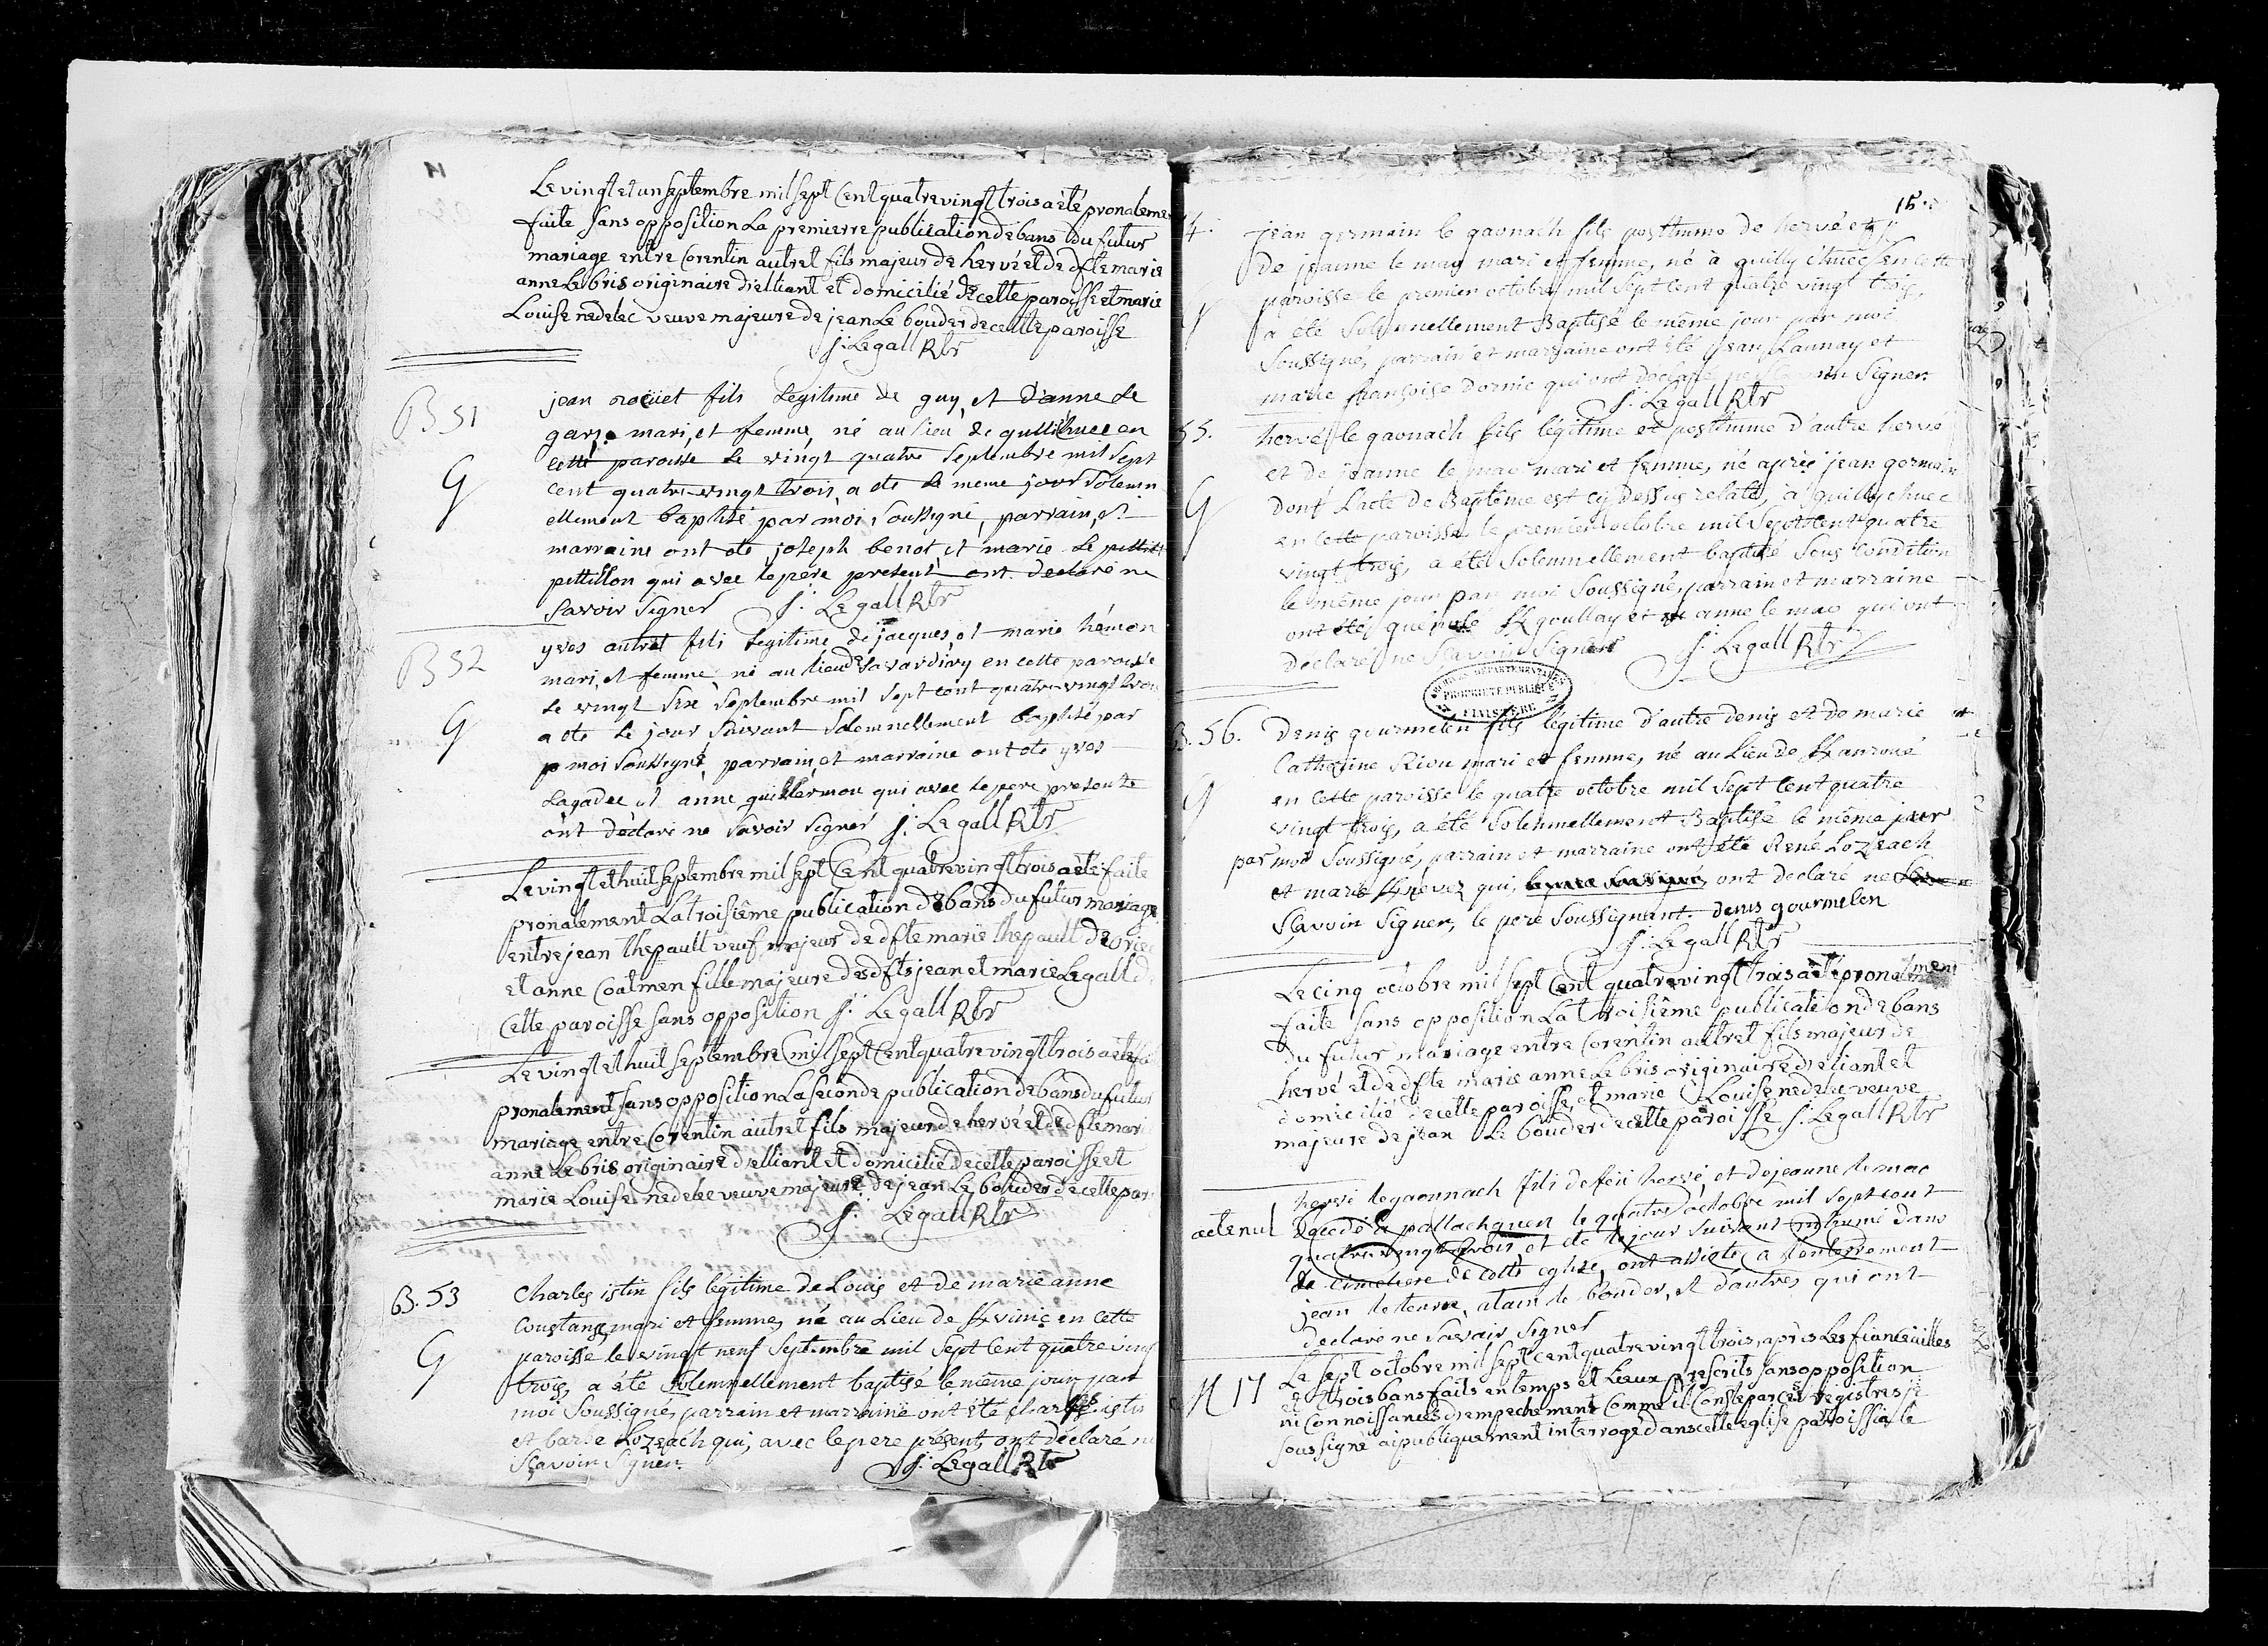 14
Le vingt et un septembre mil sept Cent quatre vingt trois a été pronaleme
faite sans opposition La premierre publication de bans du futur
mariage entre Corentin autret fils majeur de hervé et de dfte marie
anne Le bris originaire d'elliant et domicilié de cette paroisse et marie
Louise nedelec veuve majeure de jean Le bouder de cette paroisse
j: Le gall Rtr
B 51
G
jean rocüet fils Legitime de guy, et d'anne Le
gars mari, et femme, né au lieu de quillihuec en
cette paroisse Le vingt quatre Septembre mil Sept
cent quatre-vingt trois, a ete Le meme jour Solemn
ellement baptisé par moi, Soussigné, parrain, et
marraine ont ete joseph benot et marie Le pettit
pettillon qui avec le père present ont declaré ne
Savoir Signer j: Le gall Rtr
B 52
G
yves autret fils Legitime de jacques, et marie hémon
mari, et femme, né au lieu de Savardiry en cette paroisse
Le vingt Six Septembre mil Sept cent quatre-vingt trois
a ete Le jour Suivant Solemnellement baptisé par
p moi Soussigné, parrain, et marraine ont ete yves
Lagadec et anne guillermou qui avec le pere presente
ont déclaré ne Savoir Signer j: Le gall Rtr
Le vingt et huit septembre mil sept Cent quatre vingt trois a été faite
pronalement La troisième publication de bans du futur mariage
entre jean thepault veuf majeur de dfte marie thepault de
et anne Coatmen fille majeure des dfts jean et marie Le gall d
Cette paroisse sans opposition j: Le gall Rtr
Le vingt et huit Septembre mil sept Cent quatre vingt trois a été fai
pronalement sans opposition La seconde publication de bans du futur
mariage entre Corentin autret fils majeur de hervé et de dfte mari
anne Le bris originaire d'elliant et domicilié de cette paroisse et
marie Louise nedelec veuve majeure de jean Le bouder de cette par
j: Le gall Rtr
B. 53
G
Charles istin fils légitime de Louis et de marie anne
Coustans, mari et femme, né au Lieu de Kvinic en cette
paroisse le vingt neuf Septembre mil Sept Cent quatre ving
trois, a été Solemnellement baptisé le même jour par
moi Soussigné, parrain et marraine ont été Charles istin
et barbe Lozeach qui, avec le pere présent, ont déclaré ne
Sçavoir Signer. j: Le gall Rtr
15
4.
G
Jean germain le gaonach fils posthume de hervé et
De jeanne le mao mari et femme, né à quilly chuec en cette
paroisse le premier octobre mil Sept Cent quatre vingt trois,
a été Solemnellement Baptisé le même jour par moi
Soussigné, parrain et marraine ont été jean Launay et
marie françoise Dornic qui ont declaré ne Sçavoir Signer.
j: Le gall Rtr
55.
G
hervé le gaonach fils légitime et posthume d'autre hervé
et de jeanne le mao mari et femme, né après jean germain
dont L'acte de Baptême est cy dessus relaté, à quilly chuec
en cette paroisse le premier octobre mil Sept Cent quatre
vingt trois, a été Solemnellement baptisé Sous condition
le même jour par moi Soussigné, parrain et marraine
ont été Kgoullay et anne le mao qui ont
déclaré ne Sçavoir Signer j: Le gall Rtr
ARCHIVES DÉPARTEMENTALES
PROPRIÉTÉ PUBLIQUE
FINISTÈRE
B. 56.
G
Denis gourmelen fils légitime d'autre denis et de marie
Catherine Riou mari et femme, né au Lieu de Kanroué
en Cette paroisse le quatre octobre mil Sept Cent quatre
vingt trois, a été Solemnellement Baptisé le même jour
par moi Soussigné, parrain et marraine ont été René Lozeach
et marie Knevez qui, ont declaré ne
Sçavoir Signer, le pere Soussignant. denis gourmelen
j: Le gall Rtr
Le cinq octobre mil sept Cent quatre vingt trois a été pronalment
faite sans opposition La troisième publication de bans
du futur mariage entre Corentin autret fils majeur de
hervé et de dfte marie anne Le bris originaire d'eliant et
domicilié de cette paroisse, et marie Louise nedelec veuve
majeure de jean Le bouder de cette paroisse j: Le gall Rtr
acte nul
hervé le gaounach fils de feu hervé, et de jeanne le mao
decedé à pallachguen le quatre octobre mil Sept cent
quatre-vingt trois, et ete le jour Suivant inhumé dans
le Cimetiere de cette eglise, ont assisté a l'enterrement
jean le teurre, alain le bouder, et d'autres qui ont
declaré ne Savoir Signer
M 17
Le sept octobre mil sept cent quatre vingt trois, après Les fiancailles
et trois bans faits en temps et Lieux prescrits sans opposition
ni Connoissances d'empechement Comme il Conste par ces registres je
soussigné ai publiquement interrogé dans cette eglise paroissiale